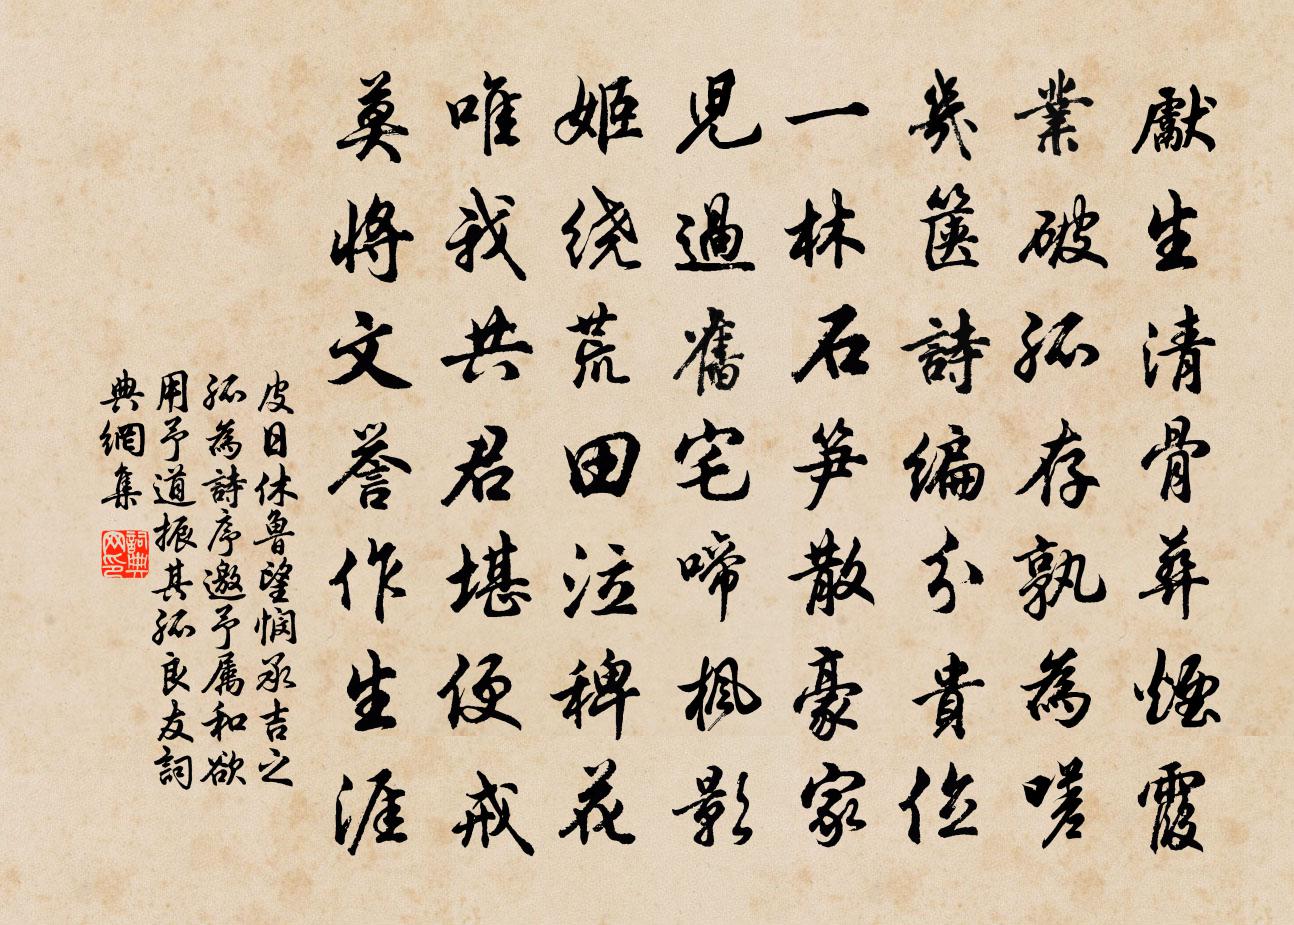 獻生清骨葬煙霞
業破孤存孰為嗟
幾篋詩編分貴位
一林石笋散豪家
兒過舊宅啼楓影
姬绕荒田泣稗花
唯我共君堪便戒
莫將文誉作生涯
皮日休魯望憫承吉之
孤為詩序邀予属和欲
用予道振其孤良友詞
典網集
詞典网印